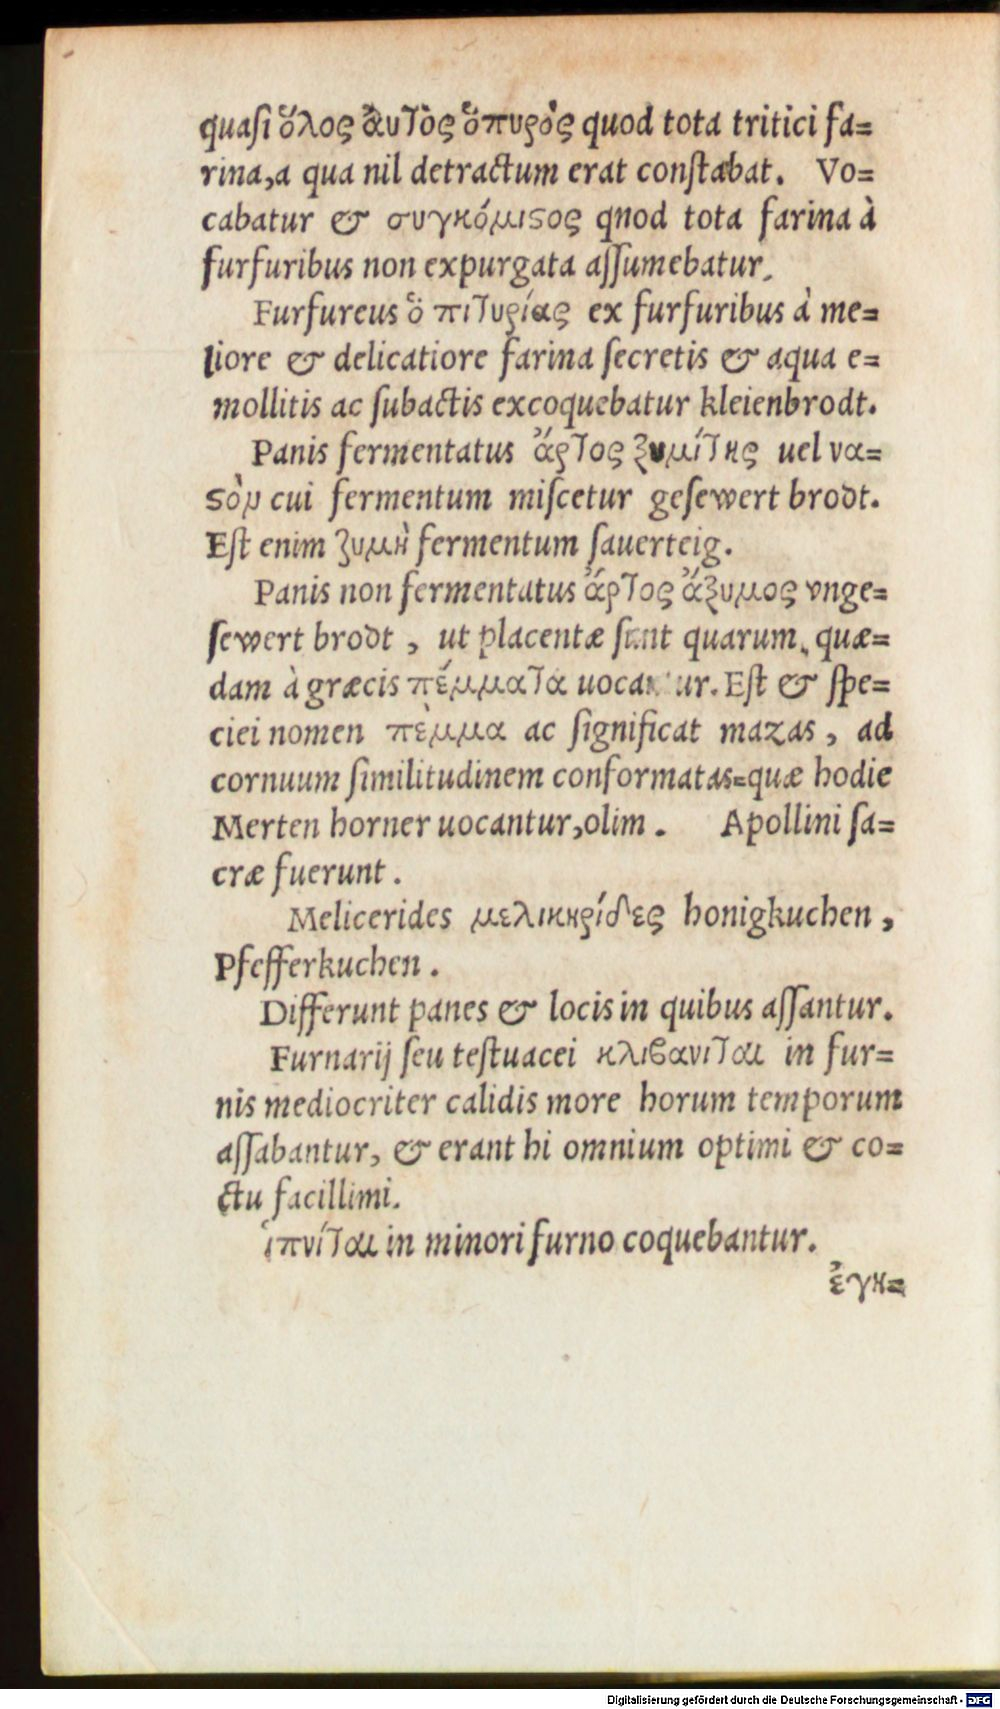 quaſi ὅλος ἀυτὸς ὁπυρὸς quod tota tritici fa=
rina,a qua nil detractum erat conſtabat. Vo=
cabatur & συγκόμιςος qnod tota farina à
furfuribus non expurgata aſſumebatur.
Furfureus ὁ πιτυρίας ex furfuribus à me=
liore & delicatiore farina ſecretis & aqua e=
mollitis ac ſubactis excoquebatur kleienbrodt.
Panis fermentatus ἄρτος ξυμίτης uel να=
ςὸν cui fermentum miſcetur geſewert brodt.
Eſt enim ζυμὴ fermentum ſauerteig.
Panis non fermentatus ἄρτος ἄξυμος vnge=
ſewert brodt , ut placentæ ſunt quarum, quæ=
dam à græcis πέμματα uocantur. Eſt & ſpe=
ciei nomen πὲμμα ac ſignificat mazas , ad
cornuum ſimilitudinem conformatas=quæ hodie
Merten horner uocantur,olim . Apollini ſa=
cræ fuerunt .
Melicerides μελικηρίδες honigkuchen ,
Pfefferkuchen .
Differunt panes & locis in quibus aſſantur.
Furnarij ſeu teſtuacei κλιβανιται in fur=
nis mediocriter calidis more horum temporum
aſſabantur, & erant hi omnium optimi & co=
ctu facillimi.
ἱπνίται in minori furno coquebantur.
ἐγκ=
Digitalisierung gefördert durch die Deutsche Forschungsgemeinschaft - DFG